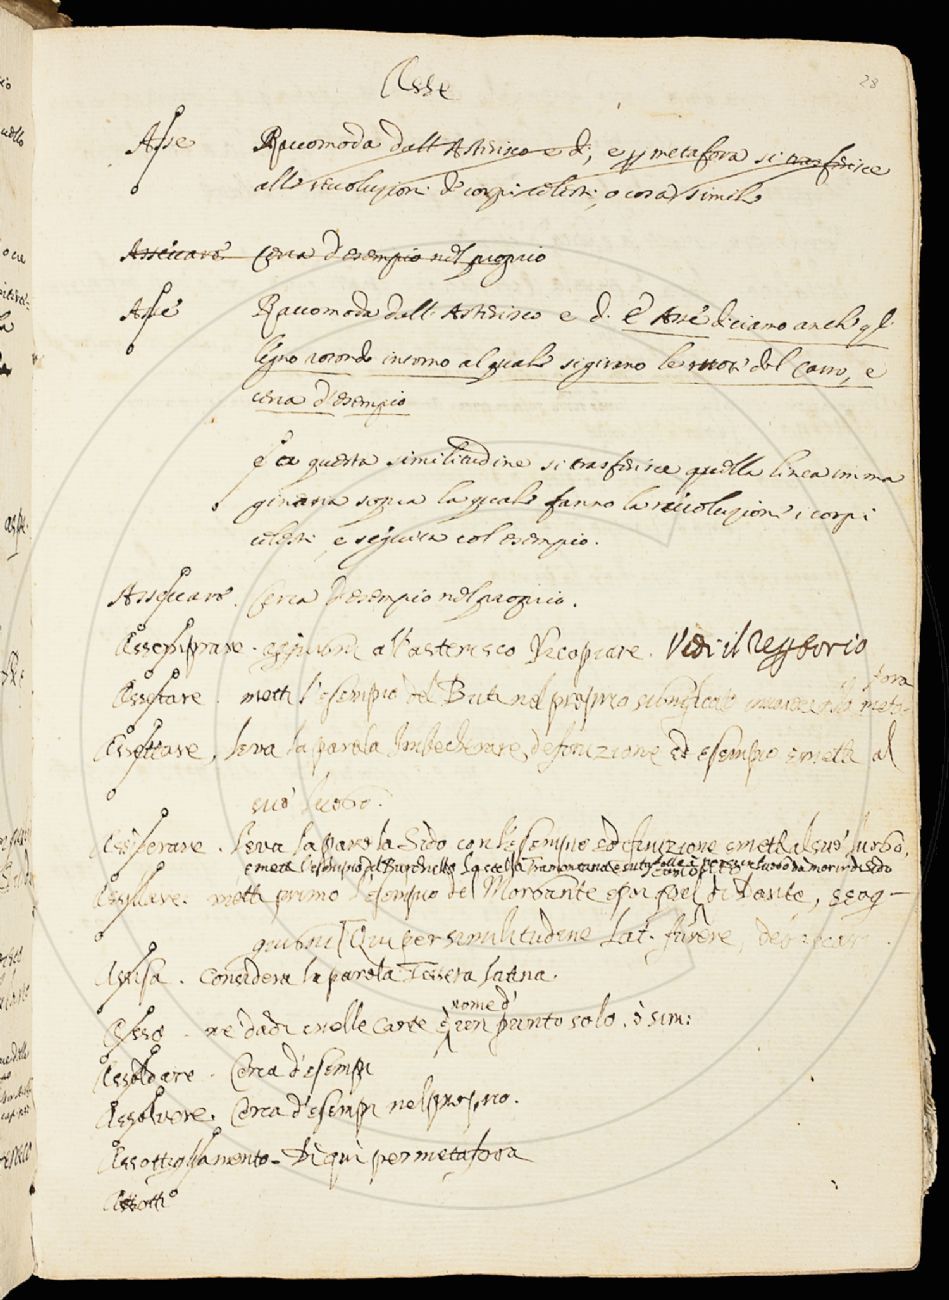 Asse
28
Asse Raccomoda dall'Asterisco e di, e p metafora si trasferisce
alle revoluzioni de corpi celesti, o cosa simile
Asseccare Cerca d'esempio nel proprio
Asse Raccomoda dall'Asterisco e di E Asse diciamo anche q.l
legno rotondo intorno al quale si girano le ruote del Carro, e
cerca d'esempio
E da questa similitudine si trasferisce quella linea imma
ginaria sopra la quale fanno la revoluzione i corpi
celesti, e seguita col esempio.
Asseccare. Cerca d'esempio nel proprio.
Assemprare. aggiugni all'asterisco Ricopiare. Vedi il Repertorio
Assetare. metti l'esempio del Buti nel proprio significato metafora
Assettare. leva la parola Imbecherare, definizione ed esempio e metti al
suo luogo.
Assiderare. leva la parola Sido con l'esempio, e definizione e metti al suo luogo.
e metti l'esempio del Burchiello La stella Tramontana
Assillare. metti primo l'esempio del Morgante e poi quel di Dante, e s'ag-
giugni [Qui per similitudine Lat. furere,
Assisa. Considera la parola Tessera latina.
Asso ne' dadi e nelle carte è nome d' un punto solo. è sim:
Assoldare. Cerca d'esempi
Assolvere. Cerca d'esempi nel proprio.
Assottigliamento. Di qui per metafora
Assotti